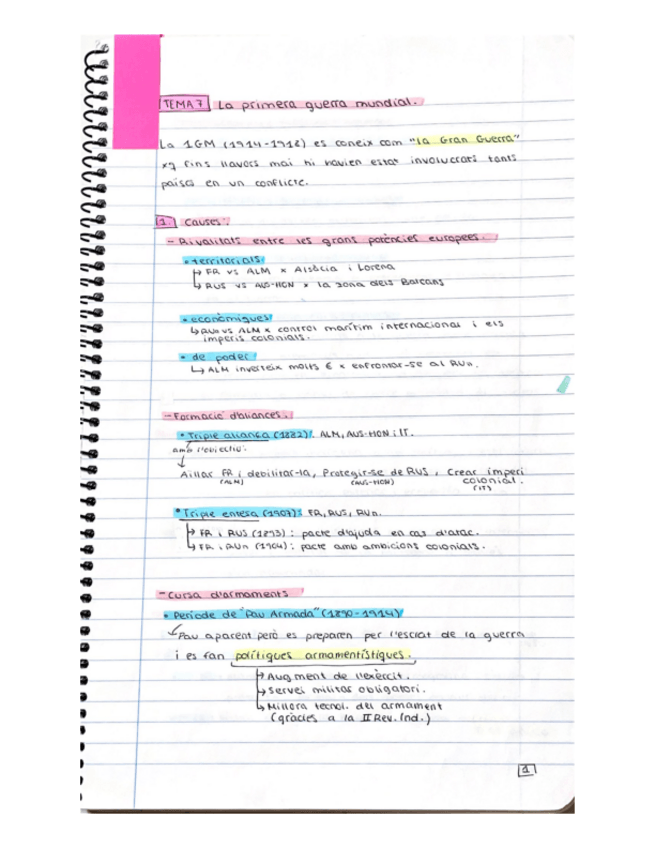 TEMA 7 La primera guerra mundial.
La 1GM (1914-1918) es coneix com "la Gran Guerra"
xq fins llavors mai hi havien estat involucrats tants
països en un conflicte.
1. Causes:
- Rivalitats entre les grans potències europees.
• territorials
↳ FR vs ALM x Alsàcia i Lorena
↳ RUS vs AUS-HON x la zona dels Balcans
• econòmiques
↳ RUn vs ALM x control marítim internacional i els
imperis colonials.
• de poder
↳ ALM inverteix molts € x enfrontar-se al RUn.
- Formació d'aliances.
• Triple aliança (1882): ALM, AUS-HON i IT.
amb l'objectiu:
↓
Aïllar FR i debilitar-la, Protegir-se de RUS, Crear imperi
(ALM) (AUS-HON) colonial.
(IT)
• Triple entesa (1907): FR, RUS, RUn.
↳ FR i RUS (1893): pacte d'ajuda en cas d'atac.
↳ FR i RUn (1904): pacte amb ambicions colonials.
- Cursa d'armaments
• Període de "Pau Armada" (1890-1914)
↙ Pau aparent però es preparen per l'esclat de la guerra
i es fan polítiques armamentístiques.
↳ Augment de l'exèrcit.
↳ Servei militar obligatori.
↳ Millora tecnol. del armament
(gràcies a la II Rev. Ind.)
1